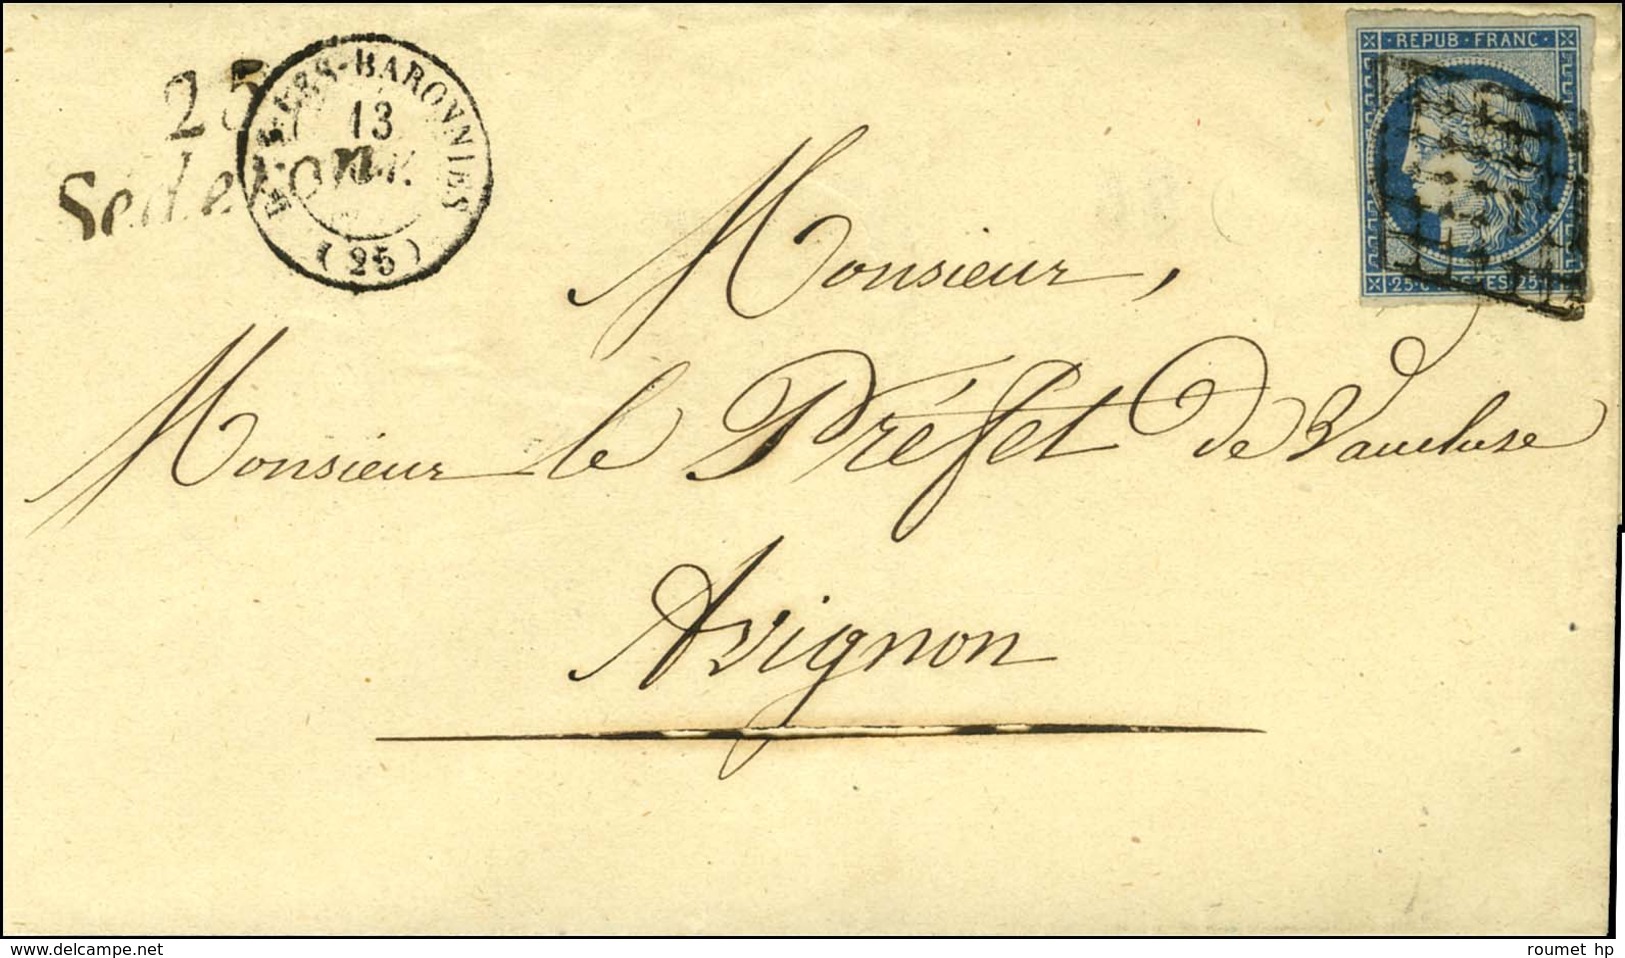 25
BARONNIES
13
(25)
REPUB·FRANC·
25
25
Monsieur,
Monsieur le Préfet de Vaucluse
Avignon
roumet hp
www.delcampe.net